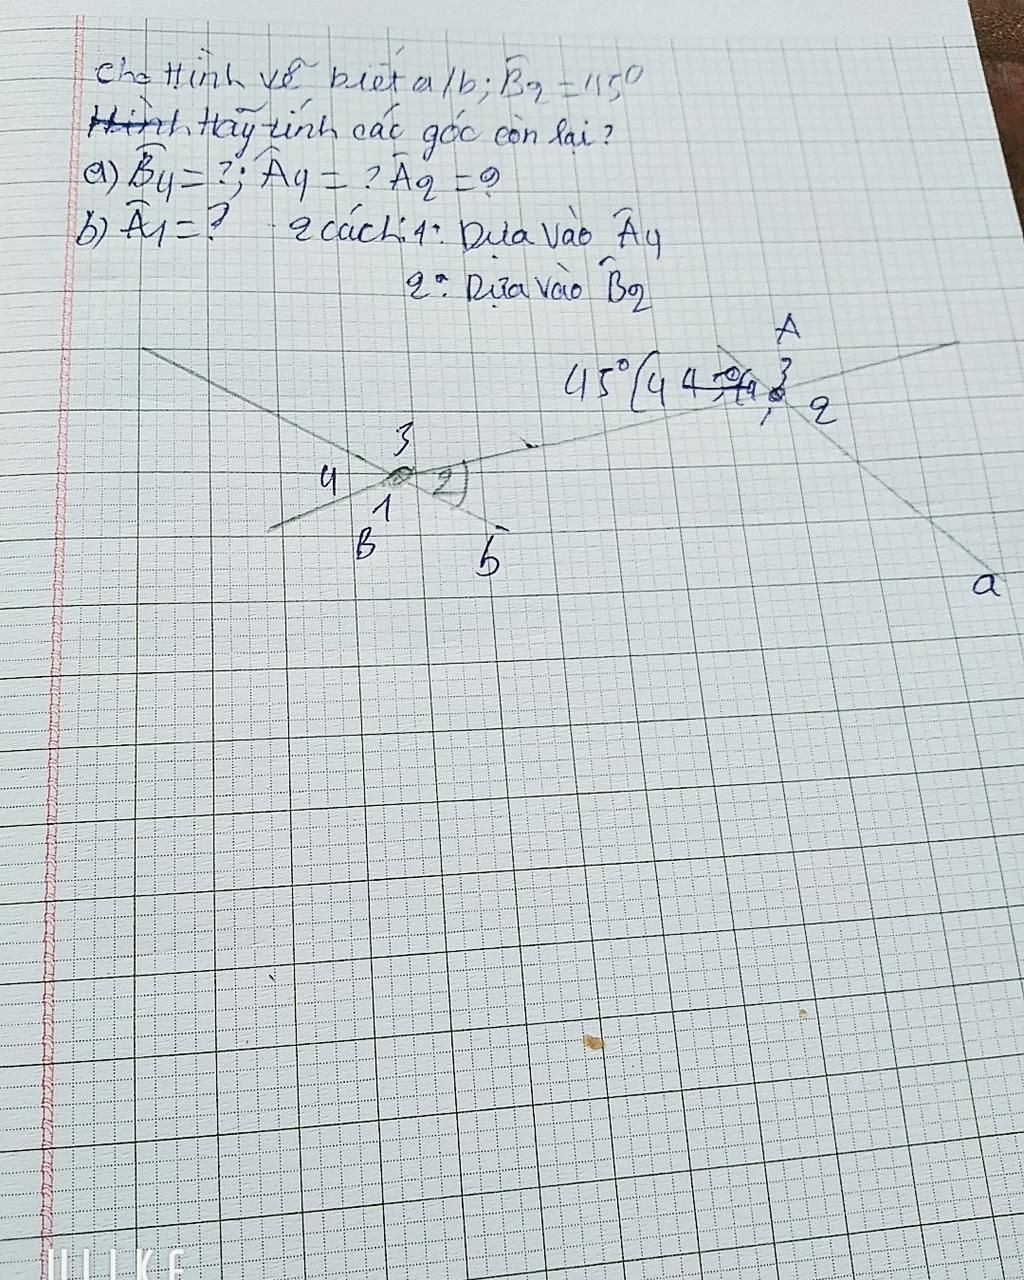 Cho Hình vẽ biết a//b; B̂2 = 45°
Hình Hãy tính các góc còn lại?
a) B̂4 = ?; Â4 = ? Â2 = ?
b) Â1 = ? 2 cách: 1: Dựa vào Â4
2: Dựa vào B̂2
A
45° (4 3
1 2
3
4 2)
1
B b
a
ULIKE